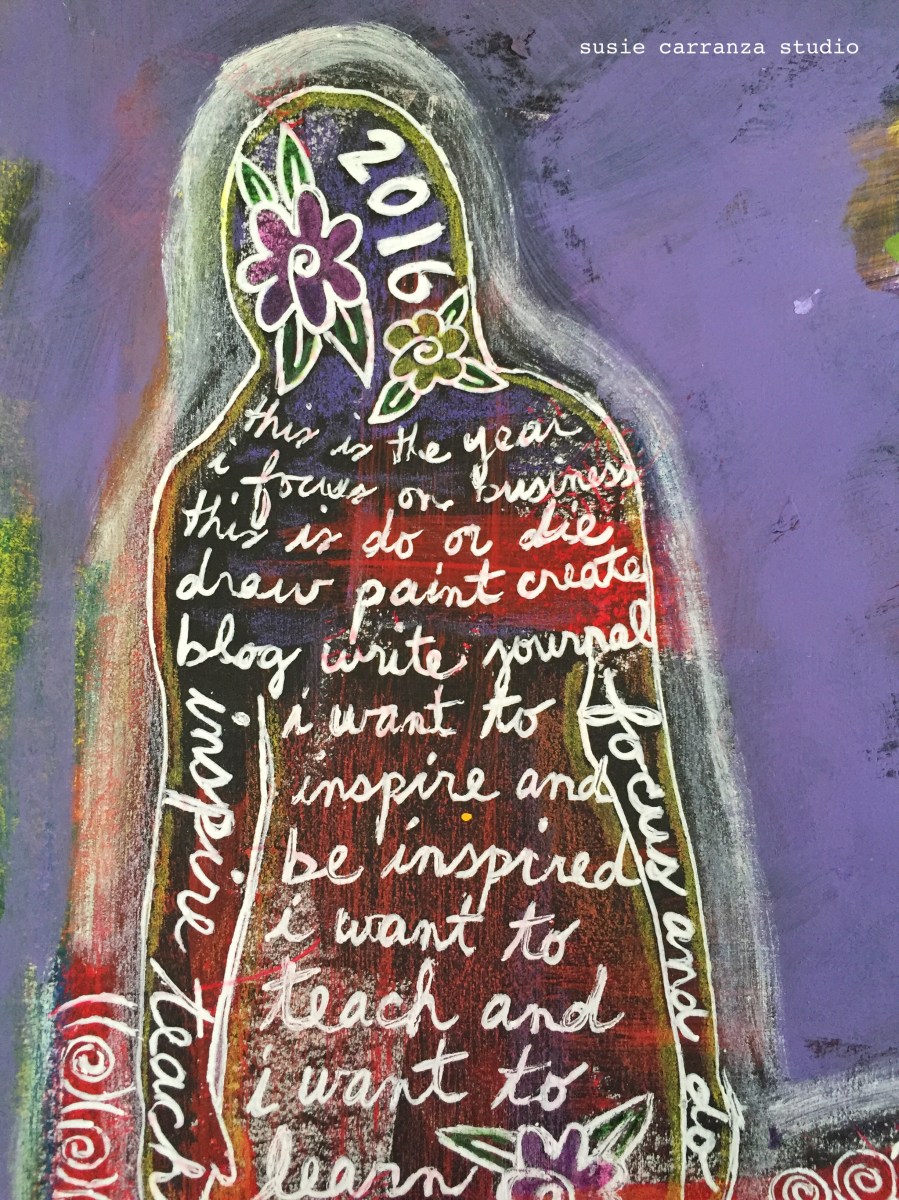 susie carranza studio
2016
this is the year
i focus on business
this is do or die
draw paint create
blog write journal
i want to
inspire and
be inspired
i want to
teach and
i want to
learn
inspire teach
focus and do